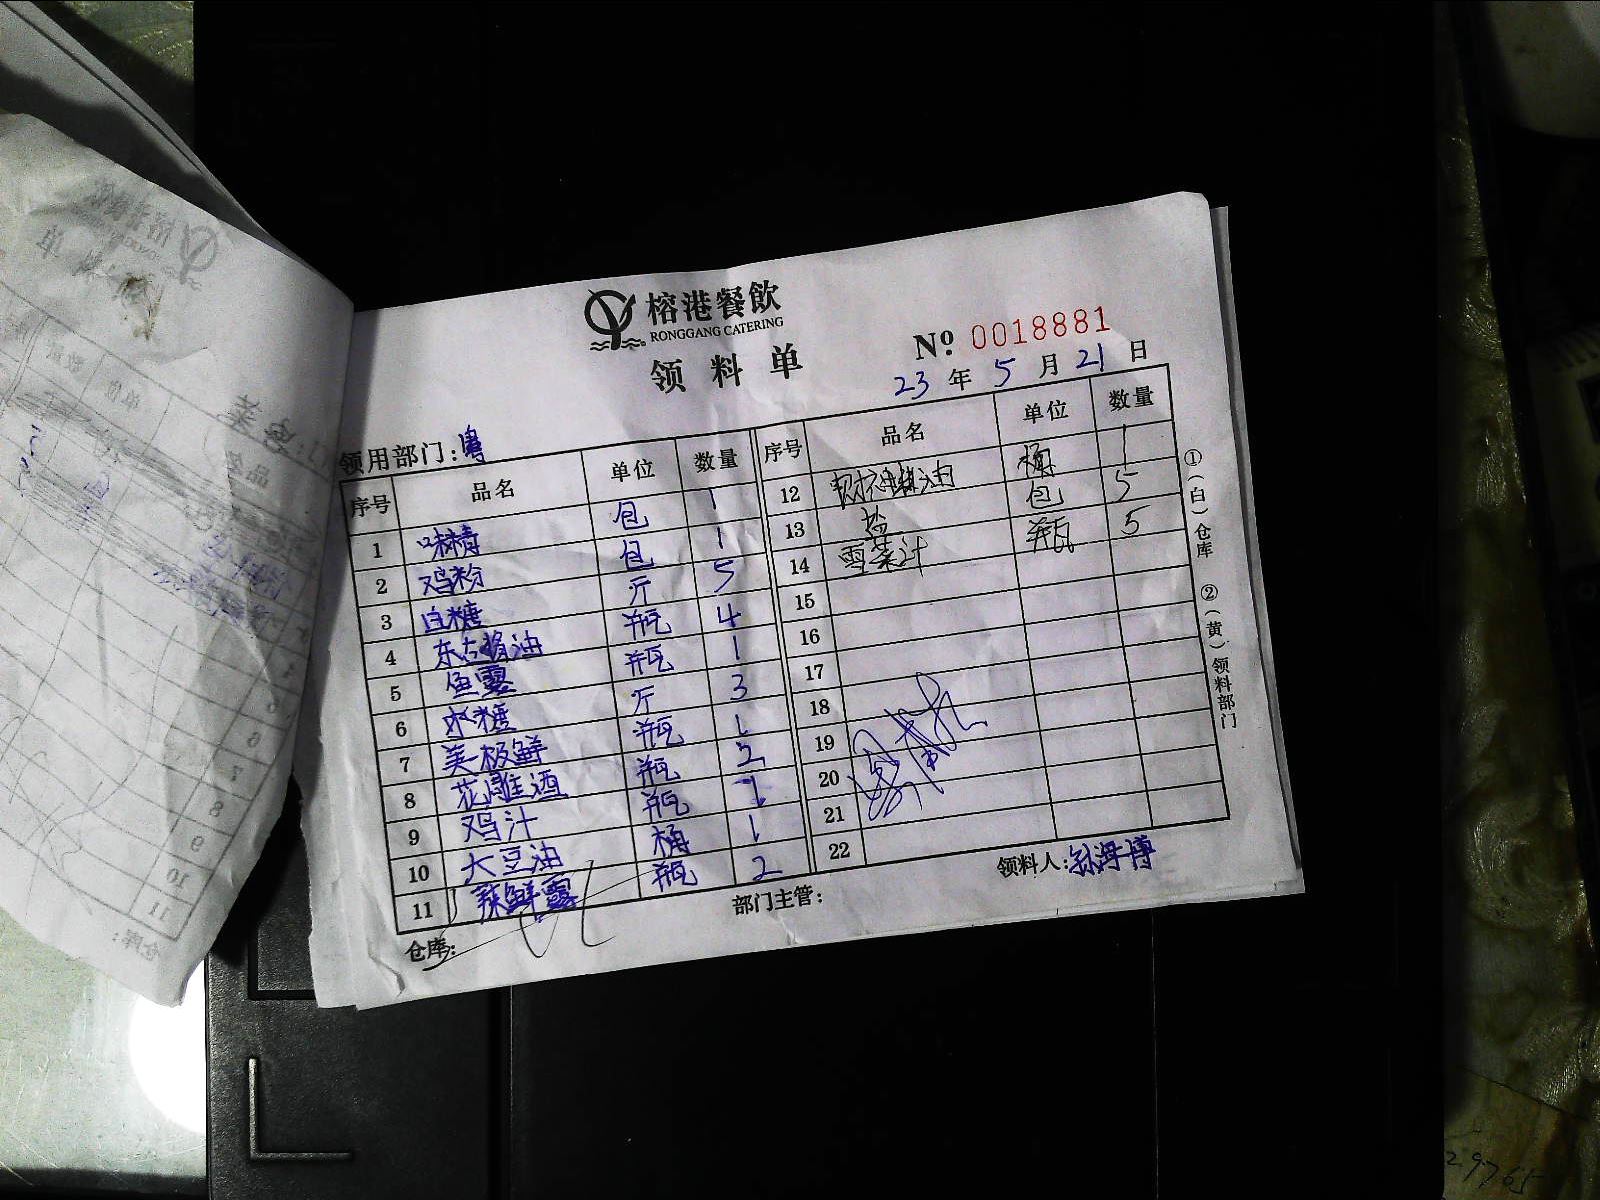 榕港餐飲
RONGGANG CATERING
领料单
№ 0018881
23年5月21日
领用部门:粤
序号 品名 单位 数量
1 味精 包 1
2 鸡粉 包 1
3 白糖 斤 5
4 东古酱油 瓶 4
5 鱼露 瓶 1
6 冰糖 斤 3
7 美极鲜 瓶 1
8 花雕酒 瓶 2
9 鸡汁 瓶 1
10 大豆油 桶 1
11 辣鲜露 瓶 2
序号 品名 单位 数量
12 财神蚝油 桶 1
13 盐 包 5
14 雪菜汁 瓶 5
15
16
17
18
19
20
21
22
仓库:
部门主管:
领料人:孙海博
①(白)仓库 ②(黄)领料部门
29765